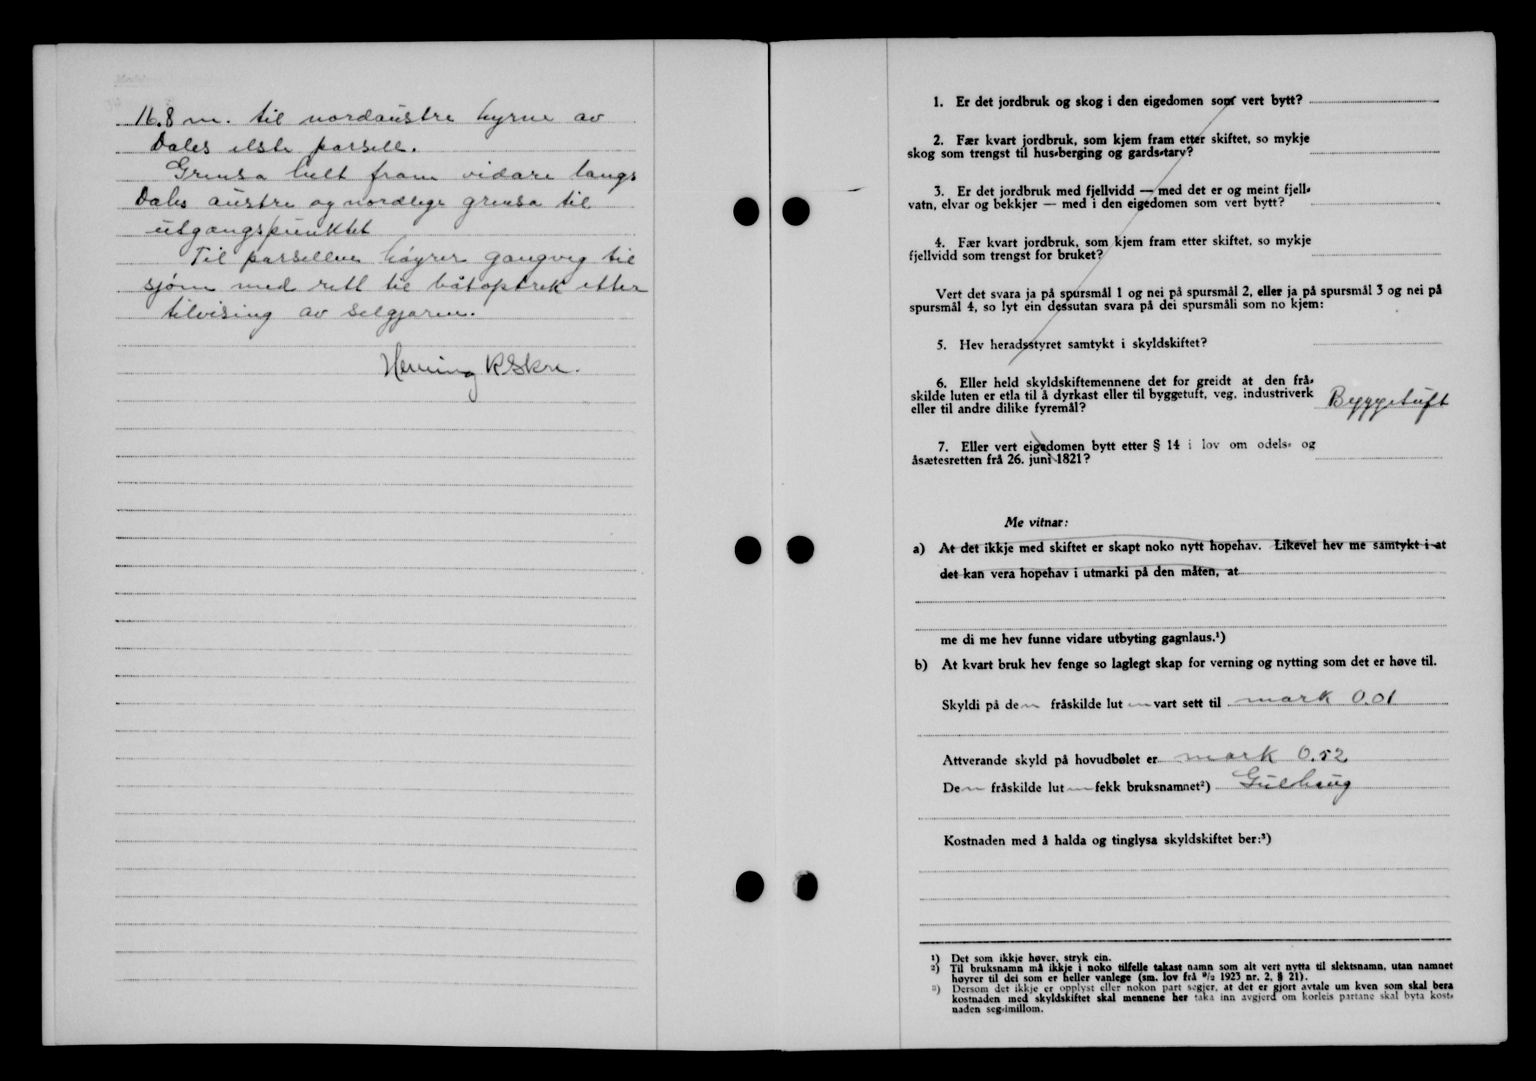 16.8 m. til nordaustre hyrne av
Dales elste parsell.
Grensa helt fram vidare langs
Dales austre og nordlege grensa til
utgangspunktet
Til parsellen høyrer gangveg til
sjøen med rett til båtoptrek etter
tilvising av seljaren.
Henning R Skre.
1. Er det jordbruk og skog i den eigedomen som vert bytt?
2. Fær kvart jordbruk, som kjem fram etter skiftet, so mykje
skog som trengst til hus-berging og gards-tarv?
3. Er det jordbruk med fjellvidd — med det er og meint fjell-
vatn, elvar og bekkjer — med i den eigedomen som vert bytt?
4. Fær kvart jordbruk, som kjem fram etter skiftet, so mykje
fjellvidd som trengst for bruket?
Vert det svara ja på spursmål 1 og nei på spursmål 2, eller ja på spursmål 3 og nei på
spursmål 4, so lyt ein dessutan svara på dei spursmåli som no kjem:
5. Hev heradsstyret samtykt i skyldskiftet?
6. Eller held skyldskiftemennene det for greidt at den frå-
skilde luten er etla til å dyrkast eller til byggetuft, veg, industriverk
eller til andre dilike fyremål? Byggetuft
7. Eller vert eigedomen bytt etter § 14 i lov om odels- og
åsætesretten frå 26. juni 1821?
Me vitnar:
a) At det ikkje med skiftet er skapt noko nytt hopehav. Likevel hev me samtykt i at
det kan vera hopehav i utmarki på den måten, at
me di me hev funne vidare utbyting gagnlaus.¹)
b) At kvart bruk hev fenge so laglegt skap for verning og nytting som det er høve til.
Skyldi på den fråskilde lut en vart sett til mark 0.01
Attverande skyld på hovudbølet er mark 0.52
Den fråskilde lut en fekk bruksnamnet²) Gulhaug
Kostnaden med å halda og tinglysa skyldskiftet ber:³)
¹) Det som ikkje høver, stryk ein.
²) Til bruksnamn må ikkje i noko tilfelle takast namn som alt vert nytta til slektsnamn, utan namnet
høyrer til dei som er heller vanlege (sm. lov frå ⁹/₂ 1923 nr. 2, § 21).
³) Dersom det ikkje er opplyst eller nokon part segjer, at det er gjort avtale um kven som skal bera
kostnaden med skyldskiftet skal mennene her taka inn avgjerd om korleis partane skal byta kost-
naden seg-imillom.